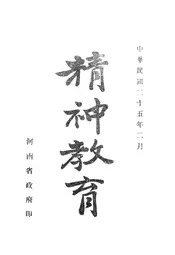 中華民國二十五年二月
精神教育
河南省政府印